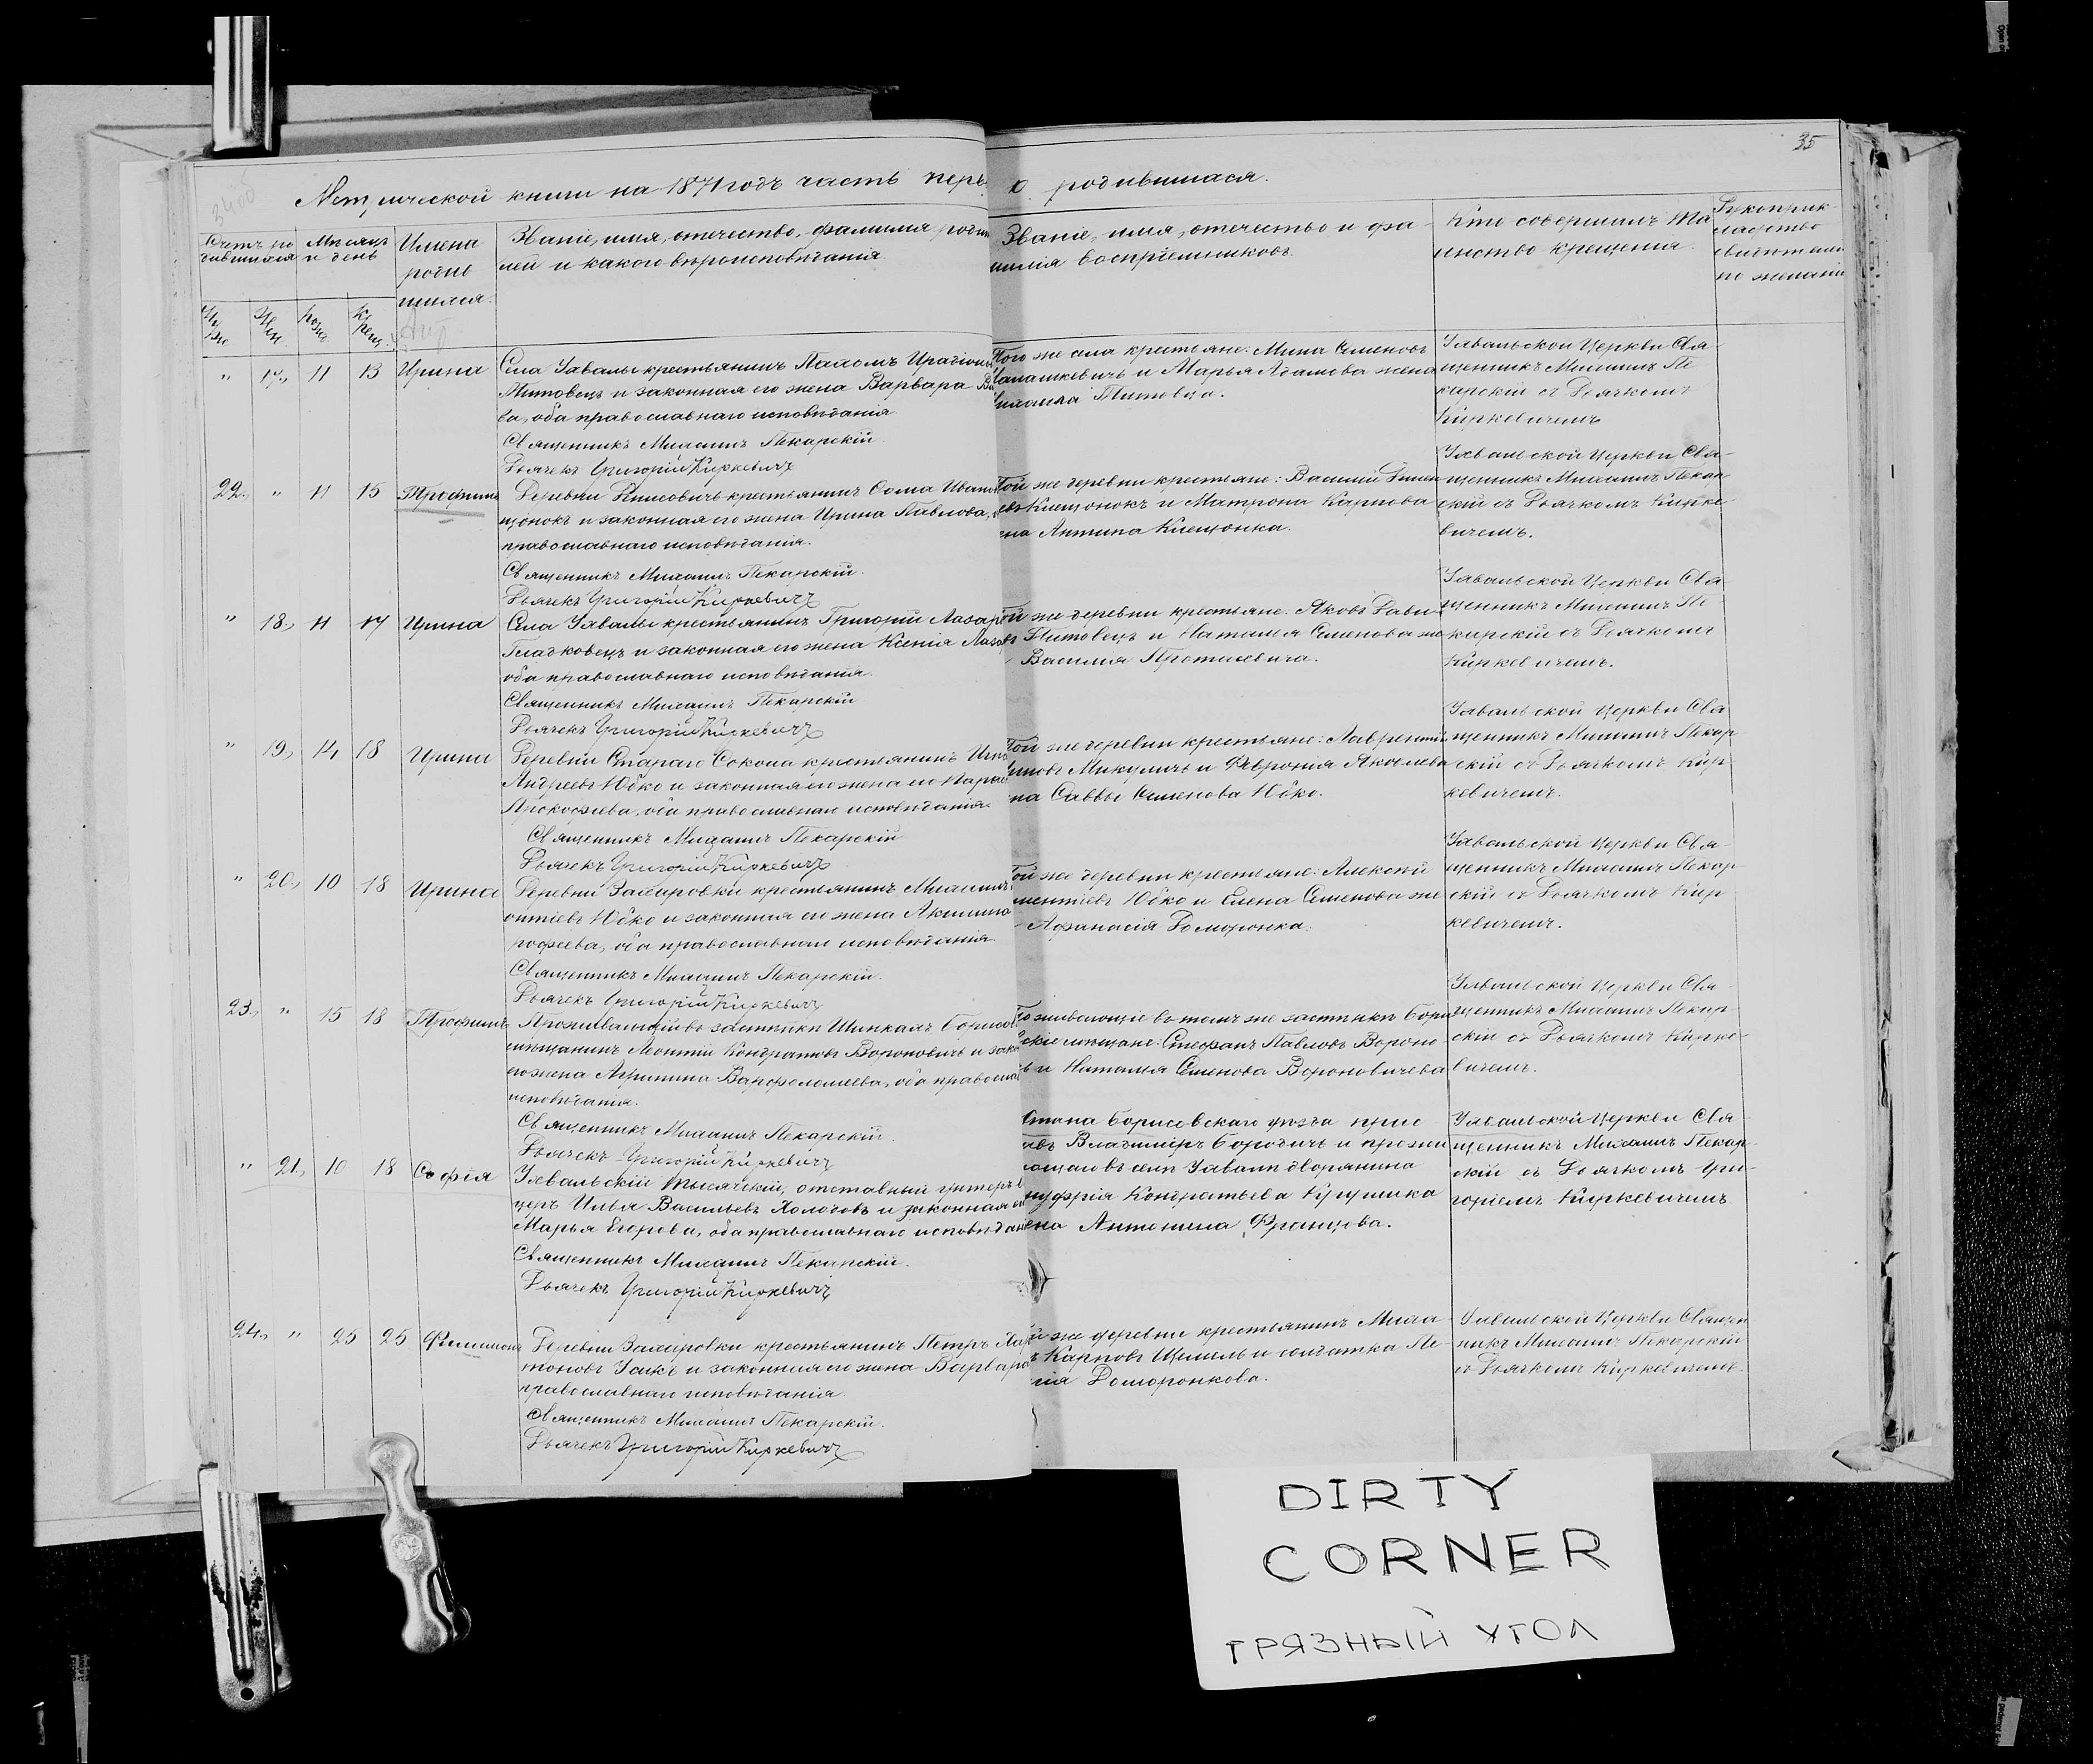 35
Метрической книги на 1871 годъ часть перв. о родившихся.
Счетъ ро
дившихся
Месяцъ
и день
Имена
родив
шихся.
Званіе, имя, отечество, фамилія родит
лей и какого вѣроисповѣданія
Званіе, имя, отечество и фа-
милія воспріемниковъ.
Кто совершалъ та
инство крещенія.
Рукоприк
ладство
свидѣтелей
по желанію
" 17, 11 13 Ирина
Села Уввалы крестьянинъ
Титовецъ и законная его жена Варвара
ва, оба православнаго исповѣданія
Священникъ Михаилъ Пекарскій.
Дьячекъ Григорій Киркевичъ
Того же села крестьяне: Мина Семеновъ
и Марья Адамова жена
Михаила Титовца.
Церкви Свя-
щенникъ Михаилъ Пе
карскій съ Дьячкомъ
Киркевичемъ
22, " 11 15 Трофимъ
Деревни крестьянинъ Сома Иванов
щонокъ и законная его жена Ирина Павлова,
православнаго исповѣданія.
Священникъ Михаилъ Пекарскій.
Дьячекъ Григорій Киркевичъ
Той же деревни крестьяне: Василій
Клещонокъ и Матрона Карпова
ена Антипа Клещонка.
Церкви Свя-
щенникъ Михаилъ Пекар
скій съ Дьячкомъ Кирке
вичемъ.
" 18, 11 17 Ирина
Села крестьянинъ Григорій Лазар
и законная его жена Ксенія
оба православнаго исповѣданія.
Священникъ Михаилъ Пекарскій
Дьячекъ Григорій Киркевичъ
ой же деревни крестьяне: Яковъ Дави-
Титовецъ и Наталья Семенова же
Василія
Церкви Свя
щенникъ Михаилъ Пе
карскій съ Дьячкомъ
Киркевичемъ.
" 19, 14 18 Ирина
Деревни Стараго Сокола крестьянинъ
Андреевъ Юбко и законная его жена
Прокофьева, оба православнаго исповѣданія
Священникъ Михаилъ Пекарскій
Дьячекъ Григорій Киркевичъ
Той же деревни крестьяне: Лаврентій
Микуличъ и Февронія Яковлева
на Саввы Семенова Юбко.
Церкви Свя
щенникъ Михаилъ Пекар
скій съ Дьячкомъ Кир-
кевичемъ.
" 20, 10 18 Ирина
Деревни Захаровки крестьянинъ Михаилъ
онтіевъ Юбко и законная его жена Акилина
рофеева, оба православнаго исповѣданія
Священникъ Михаилъ Пекарскій.
Дьячекъ Григорій Киркевичъ
ой же деревни крестьяне: Алексѣй
ментіевъ Юбко и Елена Семенова же
Афанасія Доморонка.
Церкви Свя-
щенникъ Михаилъ Пекар-
скій съ Дьячкомъ Кир-
кевичемъ.
23, " 15 18 Трофимъ
Проживающій во застѣнкѣ Борисов
мѣщанинъ Леонтій Кондратовъ Вороновичъ и зако
его жена Агрипина Варфоломеева, оба православ
исповѣданія.
Священникъ Михаилъ Пекарскій.
Дьячекъ Григорій Киркевичъ
роживающіе въ томъ же застѣнкѣ Бори
скіе мѣщане: Стефанъ Павловъ Вороно
ъ и Наталья Семенова Вороновичева
Церкви Свя-
щенникъ Михаилъ Пекар-
скій съ Дьячкомъ Кирке-
вичемъ.
" 21, 10 18 Софія
тысячскій, отставный унтеръ
церъ Илья Васильевъ Холодовъ и законная
Марья Егорова, оба православнаго исповѣдан
Священникъ Михаилъ Пекарскій.
Дьячекъ Григорій Киркевичъ
Стана Борисовскаго уѣзда прис
авъ Владиміръ Бородичъ и прожи
ющаго въ селѣ дворянина
нуфрія Кондратьева
ена Антонина Францова.
Церкви Свя-
щенникъ Михаилъ Пекар-
скій съ Дьячкомъ Гри-
горіемъ Киркевичемъ
24, " 25 25 Филимонъ
Деревни Захаровки крестьянинъ Петръ
тоновъ и законная его жена Варвара
православнаго исповѣданія.
Священникъ Михаилъ Пекарскій.
Дьячекъ Григорій Киркевичъ
й же деревни крестьянинъ Миха
Карповъ и солдатка
Доморонкова.
Церкви Священ
никъ Михаилъ Пекарскій
съ Дьячкомъ Киркевичемъ.
DIRTY
CORNER
ГРЯЗНЫЙ УГОЛ